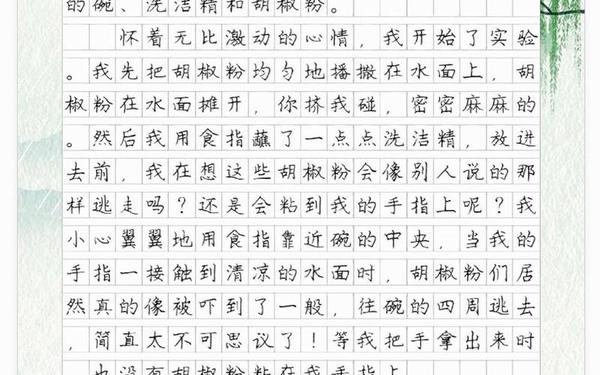 的碗、洗洁精和胡椒粉。
怀着无比激动的心情，我开始了实验
。我先把胡椒粉均匀地播撒在水面上，胡
椒粉在水面摊开，你挤我碰，密密麻麻的
。然后我用食指蘸了一点点洗洁精，放进
去前，我在想这些胡椒粉会像别人说的那
样逃走吗？还是会粘到我的手指上呢？我
小心翼翼地用食指靠近碗的中央，当我的
手指一接触到清凉的水面时，胡椒粉们居
然真的像被吓到了一般，往碗的四周逃去
，简直太不可思议了！等我把手拿出来时
，也没有胡椒粉粘在我手指上